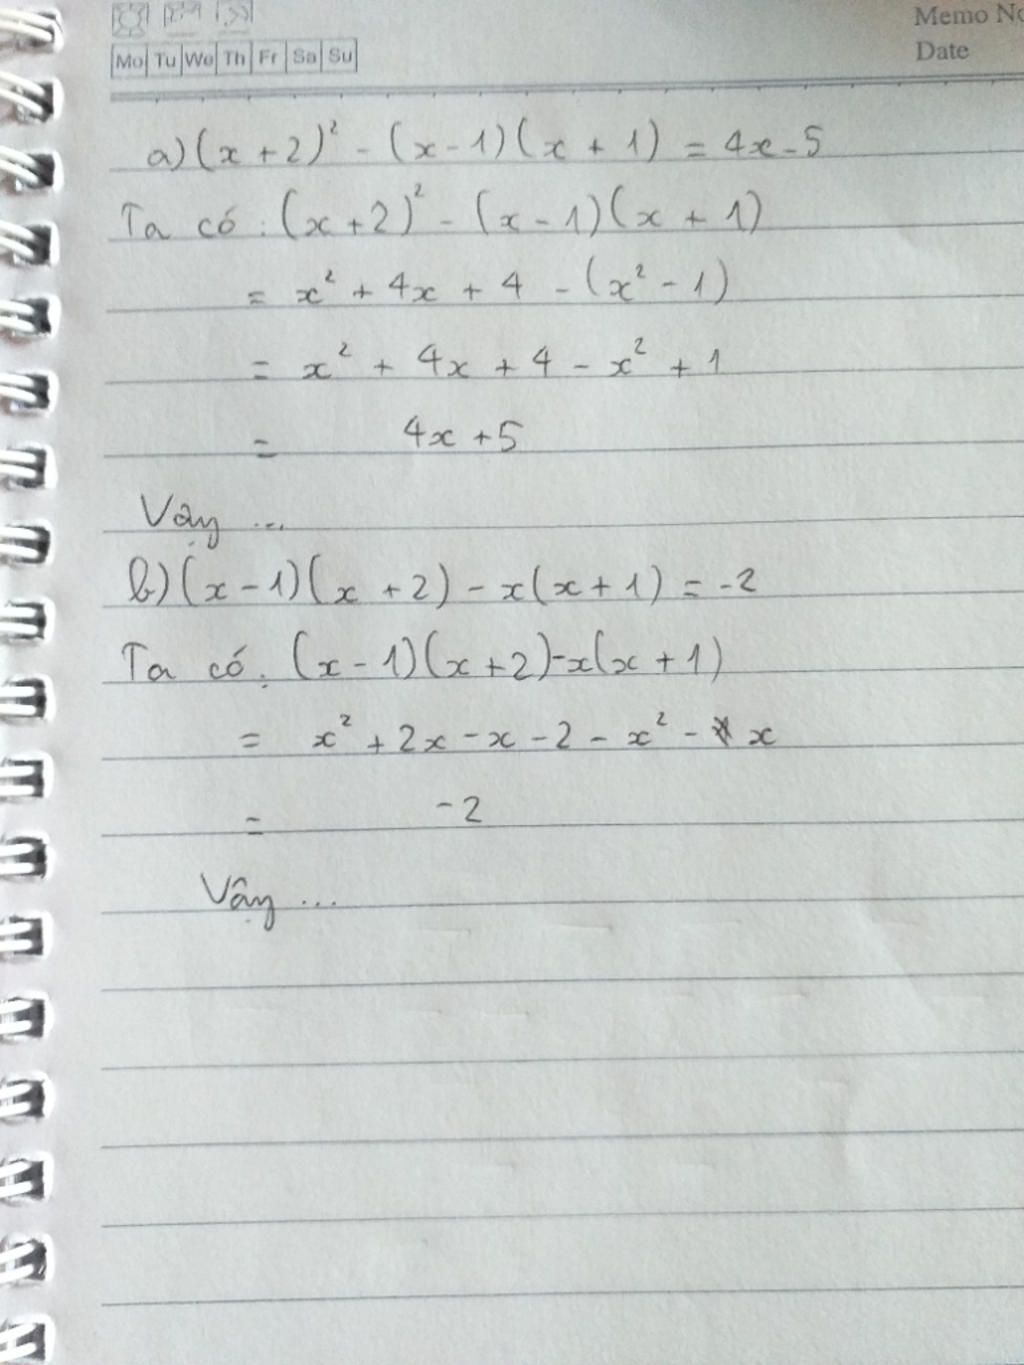 Memo No
Date
Mo Tu We Th Fr Sa Su
a) (x + 2)² - (x - 1)(x + 1) = 4x - 5
Ta có: (x + 2)² - (x - 1)(x + 1)
= x² + 4x + 4 - (x² - 1)
= x² + 4x + 4 - x² + 1
= 4x + 5
Vậy ...
b) (x - 1)(x + 2) - x(x + 1) = -2
Ta có: (x - 1)(x + 2) - x(x + 1)
= x² + 2x - x - 2 - x² - x
= -2
Vậy ...